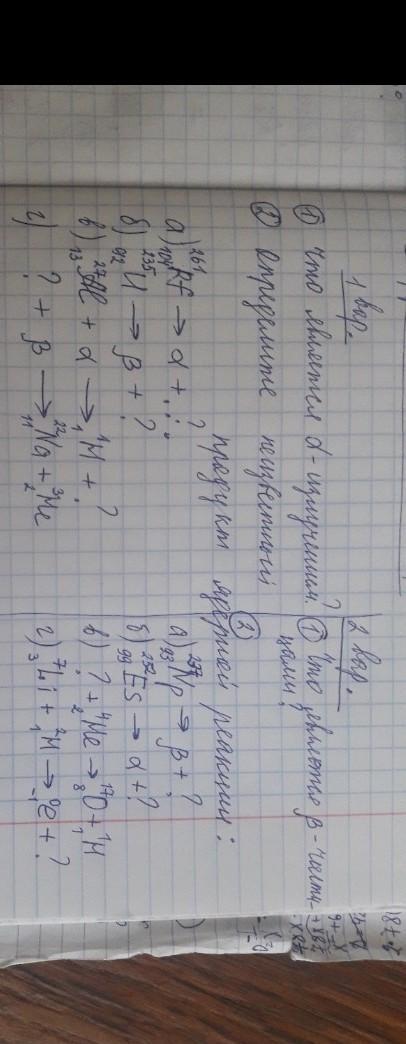 1 вар.
① Что является α-излучением?
② Определите неизвестный
продукт ядерной реакции:
а) ²⁶¹₁₀₄Rf → α + ...?
б) ²³⁵₉₂U → β + ?
в) ²⁷₁₃Al + α → ¹₁H + ?
г) ? + β → ²²₁₁Na + ³₂He
2 вар.
① Что является β-части-
цами?
②
а) ²³⁷₉₃Np → β + ?
б) ²⁵²₉₉Es → α + ?
в) ? + ⁴₂He → ¹⁷₈O + ¹₁H
г) ⁷₃Li + ²₁H → ⁰₋₁e + ?